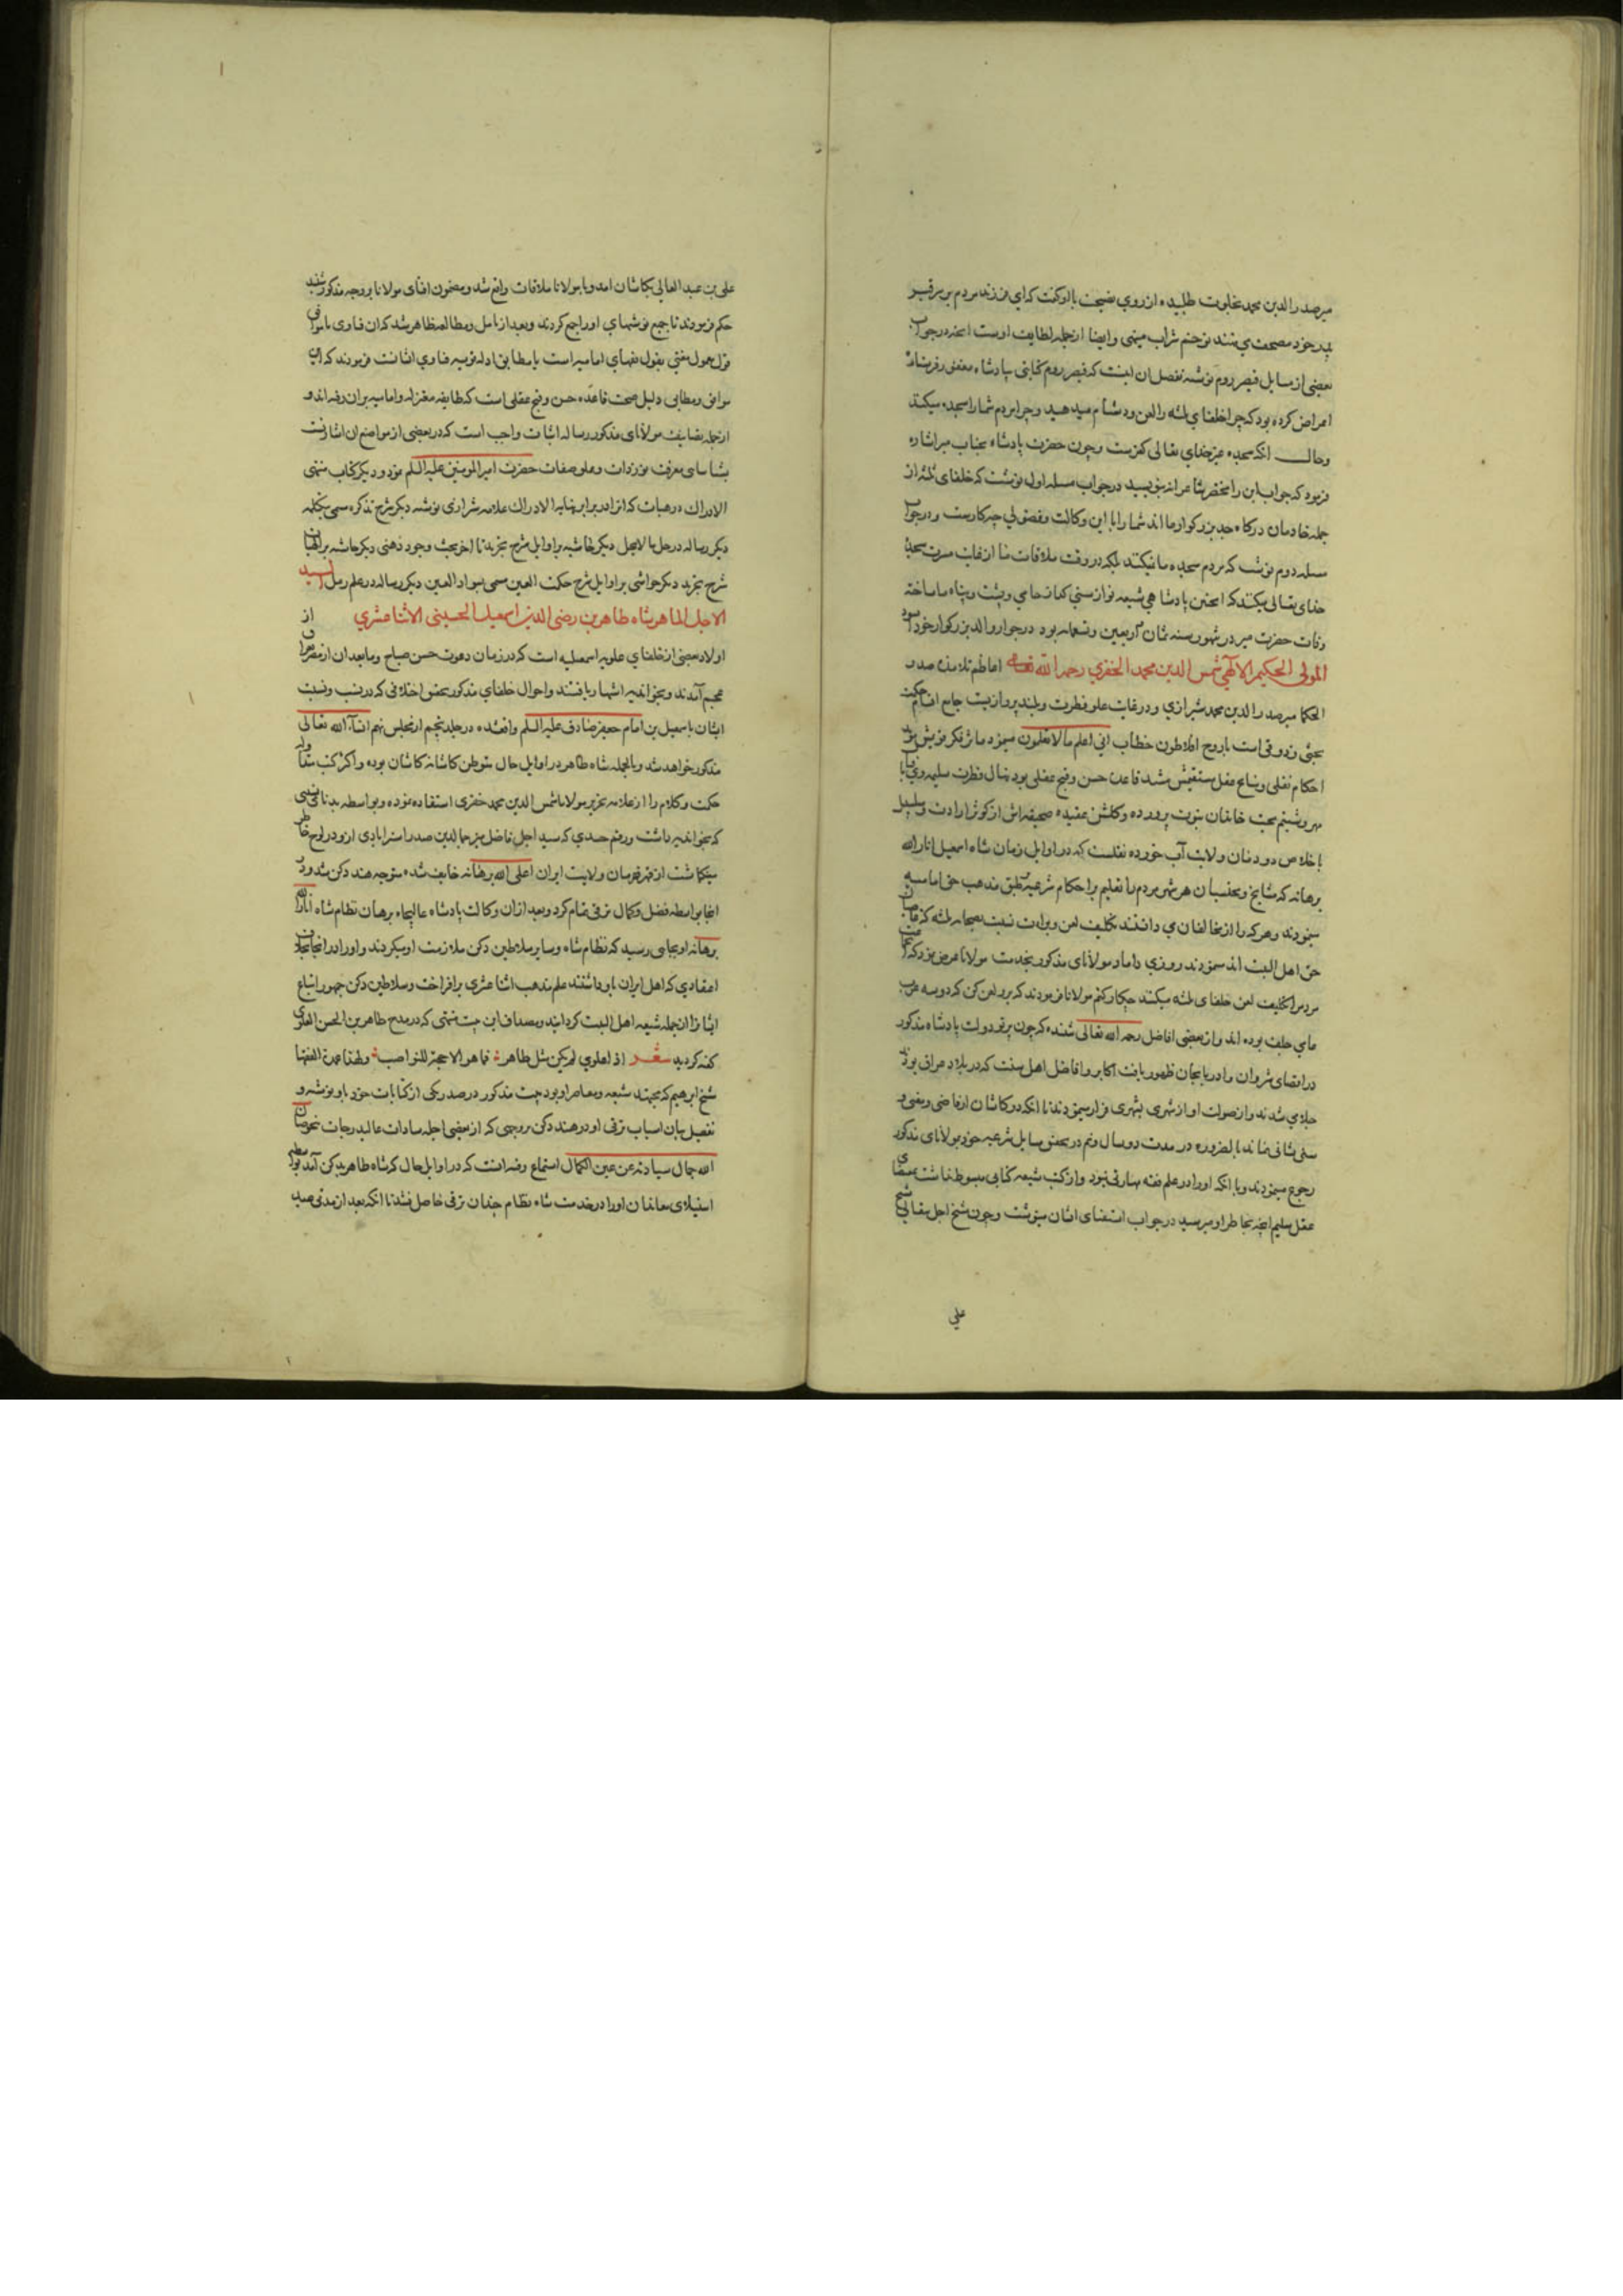 میرصدرالدین محمد بخلوت طلبیده از روی نصیحت با او گفت که ای فرزند مردم بر سر قبر
پدر خود مصحف می نهند تو خم شراب مینهی و ایضا از جمله لطایف اوست انچه در جواب
بعضی از مسایل قیصر روم نوشته تفصیل ان اینست که قیصر روم کتابتی بپادشاه مغفور فرستاده
اعتراض کرده بود که چرا خلفای ثلثه را لعن و دشنام میدهید و چرا مردم شما را سجده میکنند
وحال انکه سجده غیر خدای تعالی کفرست وچون حضرت پادشاه بجناب میر اشاره
فرمود که جواب این را مختصر شاعرانه بنویسید در جواب مسئله اول نوشت که خلفای ثلثه از
جمله خادمان درگاه جد بزرگوار ما اند شما را با این وکالت و فضولی چه کارست و در جواب
مسئله دوم نوشت که مردم سجده ما نمیکنند بلکه در وقت ملاقات ما از غایت مسرت سجدهٔ
خدای تعالی میکنند که اینچنین پادشاهی شیعه نواز سنی گداز حامی و پشت و پناه ما ساخته
وفات حضرت میر در شهور سنه ثمان و اربعین وتسعمایه بود در جوار والد بزرگوار خود اسود
المولی الحکیم الالهی شمس الدین محمد الخفری رحمه الله تعالی اعاظم تلامذه صدر
الحکما میر صدرالدین محمد شیرازی و در غایت علو فطرت و بلند پروازیست جامع اقسام حکمت
بحثی و ذوقی است با روح افلاطون خطاب انی اعلم ما لا تعلمون مینمود
احکام نقلی و نتایج عقلی قاعده حسن و قبح عقلی بود نهال فطرت سلیمه وی با
بمحبت خاندان نبوت پرورده و گلشن عقیده صحیحه اش از کوثر ارادت و سلسبیل
اخلاص دودمان ولایت آب خورده نقلست که در اوایل زمان شاه اسمعیل انار الله
برهانه که مشایخ و محتسبان هر شهر مردم را تعلیم بر احکام شرعیه طبق مذهب حق امامیه
مینمودند و هر که را از مخالفان می دانستند تکلیف لعن و برات نسبت بصحابه ثلثه که غاصبان
حق اهل البیت اند مینمودند روزی داماد مولانای مذکور بخدمت مولانا عرض نمود که
مردم را تکلیف لعن خلفای ثلثه میکنند چکار کنم مولانا فرمودند که برو لعن کن که دو سه عرب
بوده اند و از بعضی افاضل رحمه الله تعالی شنیده که چون پرتو دولت پادشاه مذکور
در اقصای شروان و ادربایجان ظهور یافت اکابر و افاضل اهل سنت که در بلاد عراق بودند
جلای شدند و از صولت او از شهری بشهری فرار مینمودند تا انکه در کاشان از قاضی و مفتی و
سنی نشانی نماند بالضروره در مدت دو سال مردم در تحقیق مسایل شرعیه خود بمولانای مذکور
رجوع مینمودند و با انکه او را در علم فقه مهارتی نبود و از کتب شیعه کتابی مبسوط نداشت بمقتضای
عقل سلیم انچه بخاطر او میرسید در جواب استفتای ایشان مینوشت وچون شیخ اجل شیخ
علی
علی بن عبدالعالی بکاشان امد و با مولانا ملاقات واقع شد و مضمون افتای مولانا بر وجه مذکور شنید
حکم فرمودند تا جمیع نوشتهای او را جمع کردند و بعد از تامل و مطالعه ظاهر شد که ان فتاوی یا موافق
قول معمول مفتی بقول فقهای امامیه است یا مطابق ادله قویه فتاوی ایشانست فرمودند که این
موافق و مطابق دلیل صحت قاعده حسن و قبح عقلی است که طایفه معتزله و امامیه بران رفته اند و
از جمله تصانیف مولانای مذکور رساله اثبات واجب است که در بعضی از مواضع ان اشارت
بشناسای معرفت بوزدات وعلو صفات حضرت امیرالمومنین علیه السلم نمود و دیگر کتاب منتهی
الادراک در هیات که انرا در برابر نهایه الادراک علامه شیرازی نوشته دیگر شرح تذکره مسمی بتکمله
دیگر رساله در حل ما لا ینحل دیگر حاشیه بر اوایل شرح تجرید تا اخر بحث وجود ذهنی دیگر حاشیه بر الهیات
شرح تجرید دیگر حواشی بر اوایل شرح حکمت العین مسمی بسواد العین دیگر رساله در علم رمل السید
الاجل الماهر شاه طاهر بن رضی الدین اسمعیل الحسینی الاثنا عشری از
اولاد بعضی از خلفای علویه اسمعیلیه است که در زمان دعوت حسن صباح وما بعد ان از مصر و
عجم آمدند و بخواندیه اشتهار یافتند و احوال خلفای مذکور بتحقیق اختلافی که در نسب ونسبت
ایشان باسمعیل بن امام جعفر صادق علیه السلم واقعشده در جلد پنجم از مجلس نهم انشاء الله تعالی
مذکور خواهد شد و بالجمله شاه طاهر در اوایل حال متوطن کاشانه کاشان بوده و اکثر کتب متداوله
حکمت و کلام را از علامه نحریر مولانا شمس الدین محمد خفری استفاده نموده و بواسطه بدنامی نسبی
که بخواندیه داشت و رقم حسدی که سید اجل فاضل میر جمالدین صدر استرابادی ازو در لوح خاطر
مینگاشت از قهرمان ولایت ایران اعلی الله برهانه خایف شده متوجه هند دکن شد و در
انجا بواسطه فضل و کمال ترقی تمام کرد و بعد از ان وکالت پادشاه عالیجاه برهان نظام شاه انار الله
برهانه او بجایی رسید که نظام شاه و سایر سلاطین دکن ملازمت او میکردند و او را در انجا بنا بر
اعتقادی که اهل ایران باو داشتند علم مذهب اثنا عشری برافراخت و سلاطین دکن و جمهور اتباع
ایشانرا از جمله شیعه اهل البیت گردانید و مصداق این بیت متنبی که در مدح طاهر بن الحسن العلوی
گفته گردید شعر اذا علوی لم یکن مثل طاهر فما هو الا حجة للنواصب ولهذا عمدة الفقها
شیخ ابرهیم که مجتهد شیعه و معاصر او بود بیت مذکور در صدر یکی از کتابات خود باو نوشته و
تفصیل بیان اسباب ترقی او در هند دکن بر وجهی که از بعضی اجله سادات عالیدرجات
الله جمال سیادته عن عین الکمال استماع رفته انست که در اوایل حال که شاه طاهر بدکن آمد بواسطه
استیلای معاندان او را در خدمت شاه نظام چندان ترقی حاصل نشد تا انکه بعد از مدتی